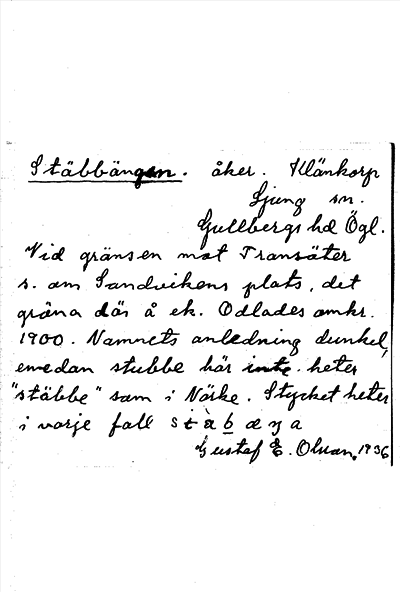 Stäbbängen. åker. Klänkorp
Ljung sn.
Gullbergs hd Ögl.
Vid gränsen mot Transäter
s. om Sandvikens plats, det
gröna där å ek. Odlades omkr.
1900. Namnets anledning dunkel,
emedan stubbe här inte heter
"stäbbe" som i Närke. Stycket heter
i varje fall
Gustaf E. Olsson. 1936